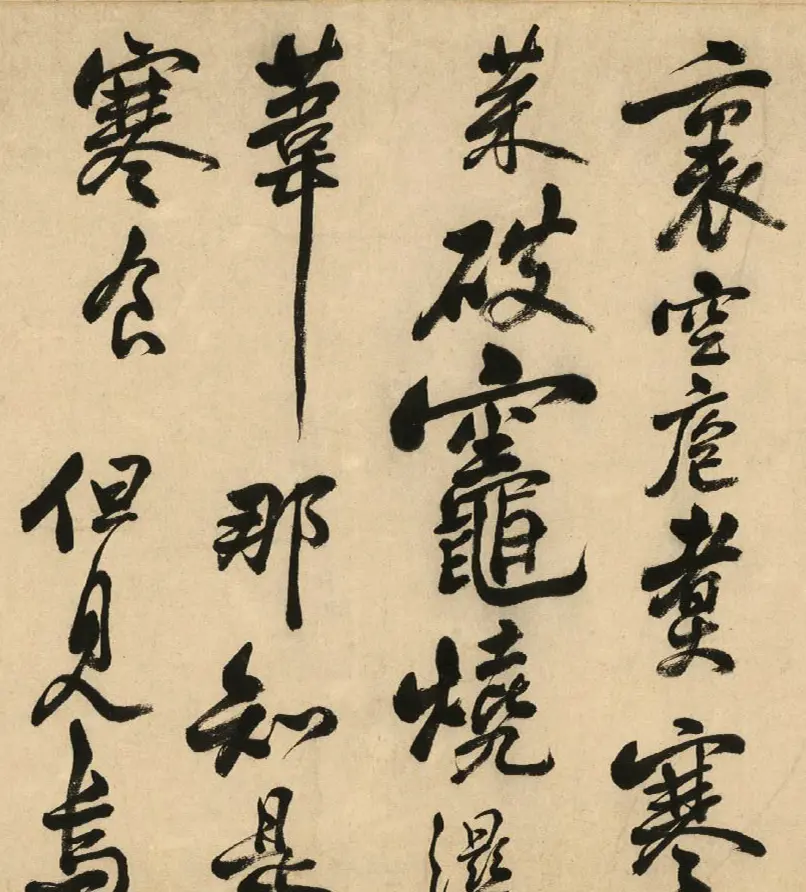 裏空庖煮寒
菜破竈燒濕
葦那知是
寒食但見烏